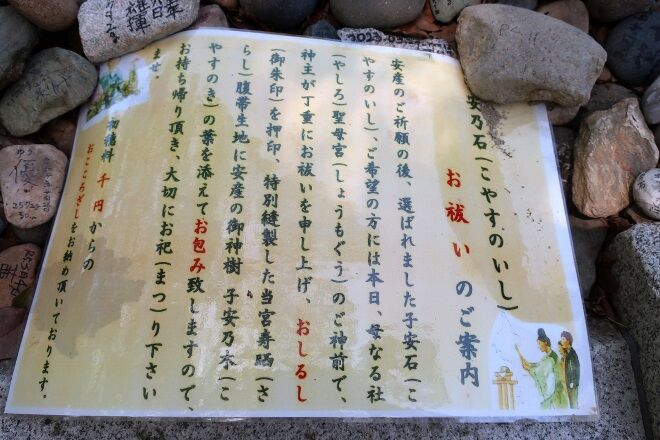 安乃石(こやすのいし)
お祓いのご案内
安産のご祈願の後、選ばれました子安石(こ
やすのいし)、ご希望の方には本日、母なる社
(やしろ)聖母宮(しょうもぐう)のご神前で、
神主が丁重にお祓いを申し上げ、おしるし
(御朱印)を押印、特別縫製した当宮寿晒(さ
らし)腹帯生地に安産の御神樹 子安乃木(こ
やすのき)の葉を添えてお包み致しますので、
お持ち帰り頂き、大切にお祀(まつ)り下さい
ませ。
初穂料 千円からの
おこころざしをお納め頂いております。
2023